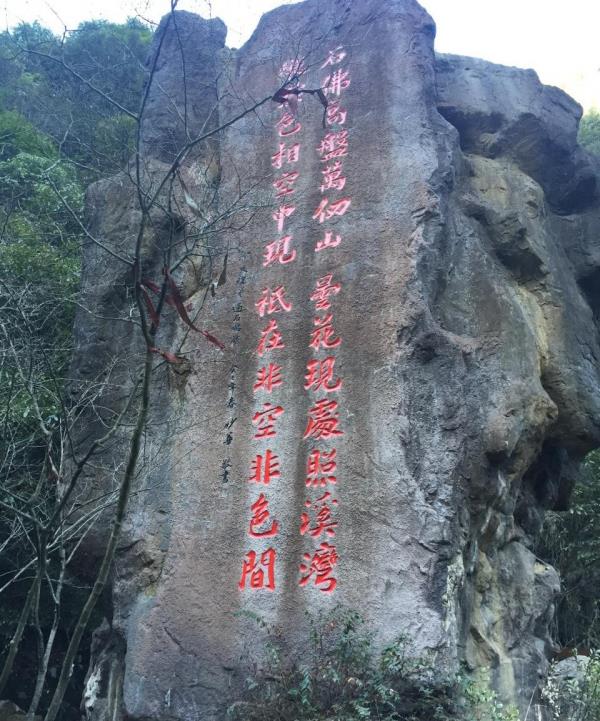 石佛高盤萬仞山 曇花現處照溪灣
色相空中現 祗在非空非色間
年春 敬書